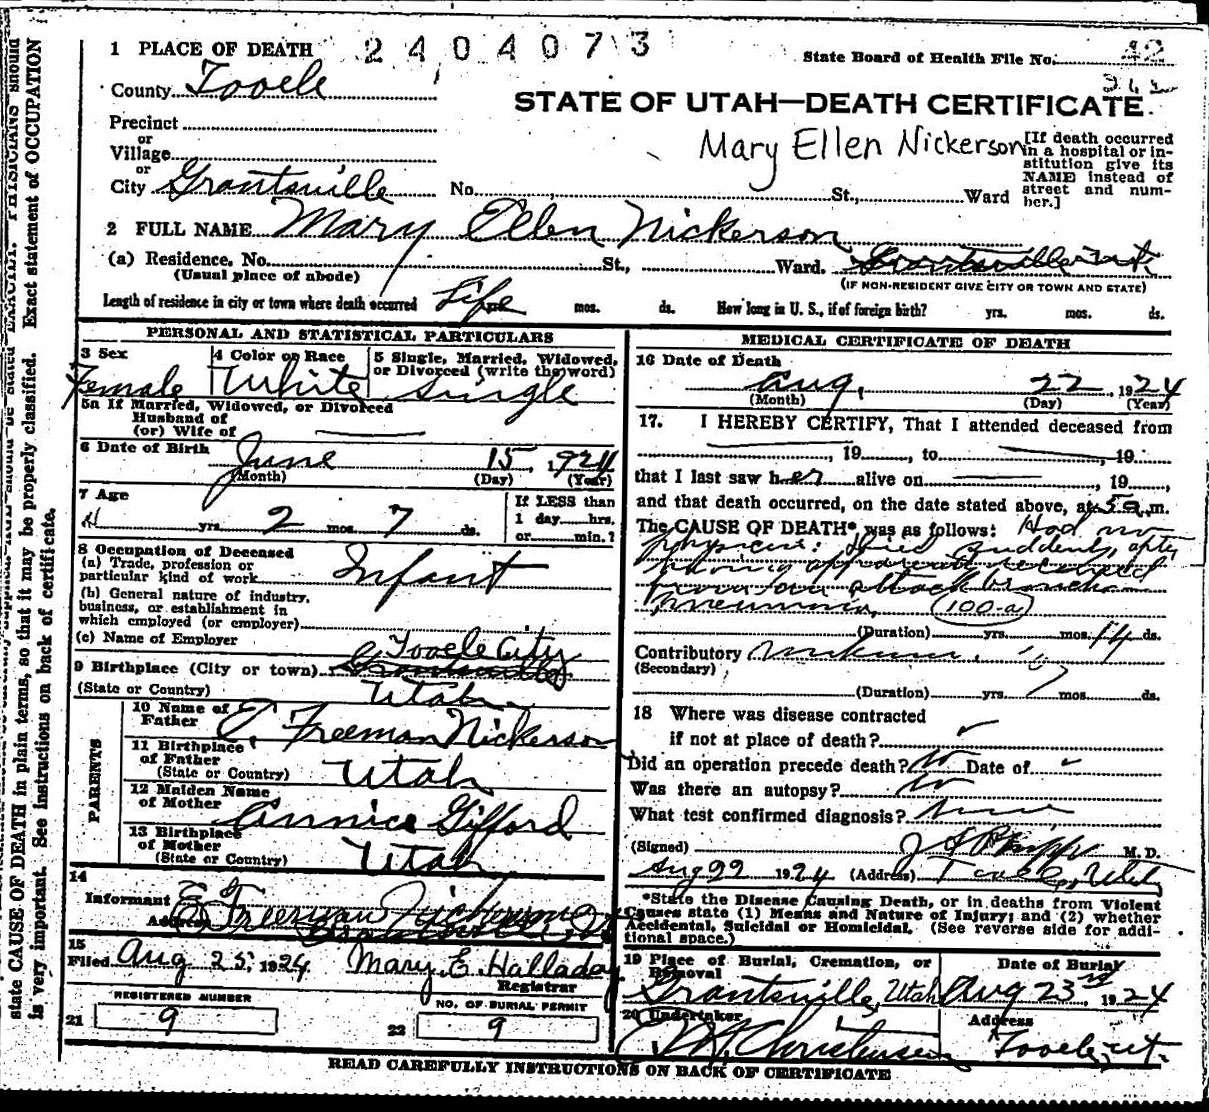 1 PLACE OF DEATH 2404073 State Board of Health File No. 42
County Tooele
STATE OF UTAH—DEATH CERTIFICATE
Precinct
or
Village
or
City Grantsville No. St., Ward
Mary Ellen Nickerson
[If death occurred
in a hospital or in-
stitution give its
NAME instead of
street and num-
ber.]
2 FULL NAME Mary Ellen Nickerson
(a) Residence. No. St., Ward. Grantsville Ut.
(Usual place of abode) (IF NON-RESIDENT GIVE CITY OR TOWN AND STATE)
Length of residence in city or town where death occurred Life mos. ds. How long in U. S., if of foreign birth? yrs. mos. ds.
PERSONAL AND STATISTICAL PARTICULARS
3 Sex Female
4 Color or Race White
5 Single, Married, Widowed,
or Divorced (write the word)
Single
5a If Married, Widowed, or Divorced
Husband of
(or) Wife of
6 Date of Birth June 15, 1924
(Month) (Day) (Year)
7 Age
yrs. 2 mos. 7 ds.
If LESS than
1 day hrs.
or min.?
8 Occupation of Deceased
(a) Trade, profession or
particular kind of work Infant
(b) General nature of industry,
business, or establishment in
which employed (or employer)
(c) Name of Employer
Tooele City
9 Birthplace (City or town) Grantsville
(State or Country) Utah
PARENTS
10 Name of
Father E. Freeman Nickerson
11 Birthplace
of Father
(State or Country) Utah
12 Maiden Name
of Mother Annice Gifford
13 Birthplace
of Mother
(State or Country) Utah
14
Informant E. Freeman Nickerson
Address
15
Filed Aug 25, 1924. Mary E. Halladay
Registrar
REGISTERED NUMBER
21 9
NO. OF BURIAL PERMIT
22 9
MEDICAL CERTIFICATE OF DEATH
16 Date of Death
Aug. 22, 1924
(Month) (Day) (Year)
17. I HEREBY CERTIFY, That I attended deceased from
, 19, to , 19
that I last saw her alive on , 19,
and that death occurred, on the date stated above, at 5 a.m.
The CAUSE OF DEATH* was as follows: Had no
physician. Died suddenly, after
having apparently recovered
from an attack broncho
pneumonia, 100-a
(Duration) yrs. mos. 14 ds.
Contributory unknown.
(Secondary)
(Duration) yrs. mos. ds.
18 Where was disease contracted
if not at place of death?
Did an operation precede death? No Date of
Was there an autopsy? No
What test confirmed diagnosis? None
(Signed) M. D.
Aug 22 1924 (Address) Tooele, Utah
*State the Disease Causing Death, or in deaths from Violent
Causes state (1) Means and Nature of Injury; and (2) whether
Accidental, Suicidal or Homicidal. (See reverse side for addi-
tional space.)
19 Place of Burial, Cremation, or
Removal
Grantsville, Utah
Date of Burial
Aug 23rd, 1924
20 Undertaker
Christensen
Address
Tooele, Ut.
READ CAREFULLY INSTRUCTIONS ON BACK OF CERTIFICATE
state CAUSE OF DEATH in plain terms, so that it may be properly classified. Exact statement of OCCUPATION
is very important. See instructions on back of certificate.